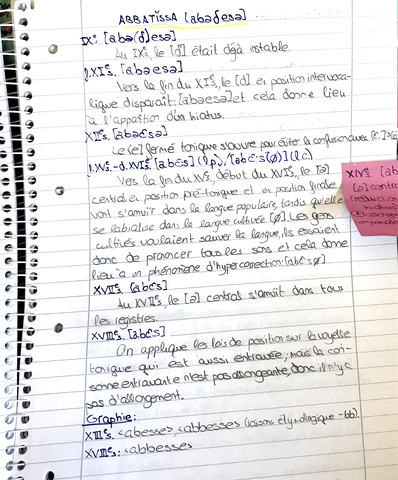 ABBATĬSSA [abəđesə]
IXe s. [abə(đ)esə]
Au IXe s, le [đ] était déjà instable.
f. XIe s. [abəesə]
Vers la fin du XIe s, le [đ] en position intervoca-
lique disparaît: [abəesə] et cela donne lieu
à l'apparition d'un hiatus.
XIIe s. [abəɛsə]
Le [e] fermé tonique s'ouvre pour éviter la confusion avec
f. XVe s.-d. XVIe s. [abɛs] (l.p), [abɛsø] (l.c)
Vers la fin du XVe s, début du XVIe s, le [ə]
central en position pré-tonique et en position finale
vont s'amuïr dans la langue populaire, tandis qu'elle
se labialise dans la langue cultivée [ø]. Les gens
cultivés voulaient sauver la langue, ils essaient
donc de prononcer tous les sons et cela donne
lieu à un phénomène d'hypercorrection: [abɛsø]
XVIIe s. [abɛs]
Au XVIIe s, le [ə] central s'amuït dans tous
les registres.
XVIIIe s. [abɛs]
On applique les lois de position sur la voyelle
tonique qui est aussi entravée, mais la con-
sonne entravante n'est pas allongeante, donc il n'y a
pas d'allongement.
Graphie:
XIIe s. <abesses, <abbesses (raisons étymologique -bb).
XVIIIe s: <abbesses
XIVe s. [ab
[ə] centra